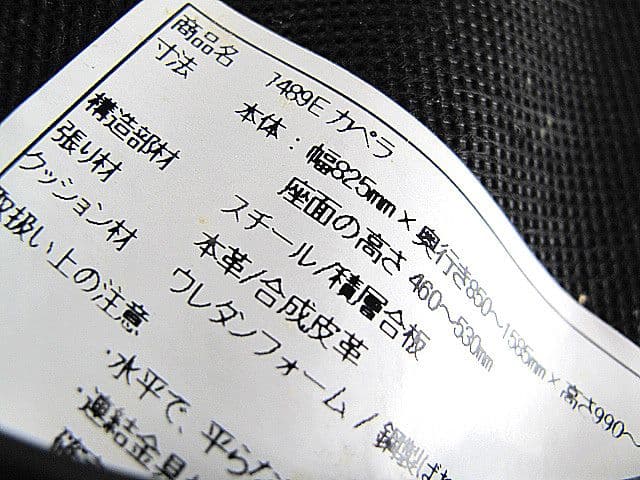 商品名 7489E カペラ
寸法 本体:幅825mm×奥行き850~1585mm×高さ990~
座面の高さ 460~530mm
構造部材 スチール/積層合板
張り材 本革/合成皮革
クッション材 ウレタンフォーム/鋼製ばね
取扱い上の注意
・水平で、平らな
・連結金具